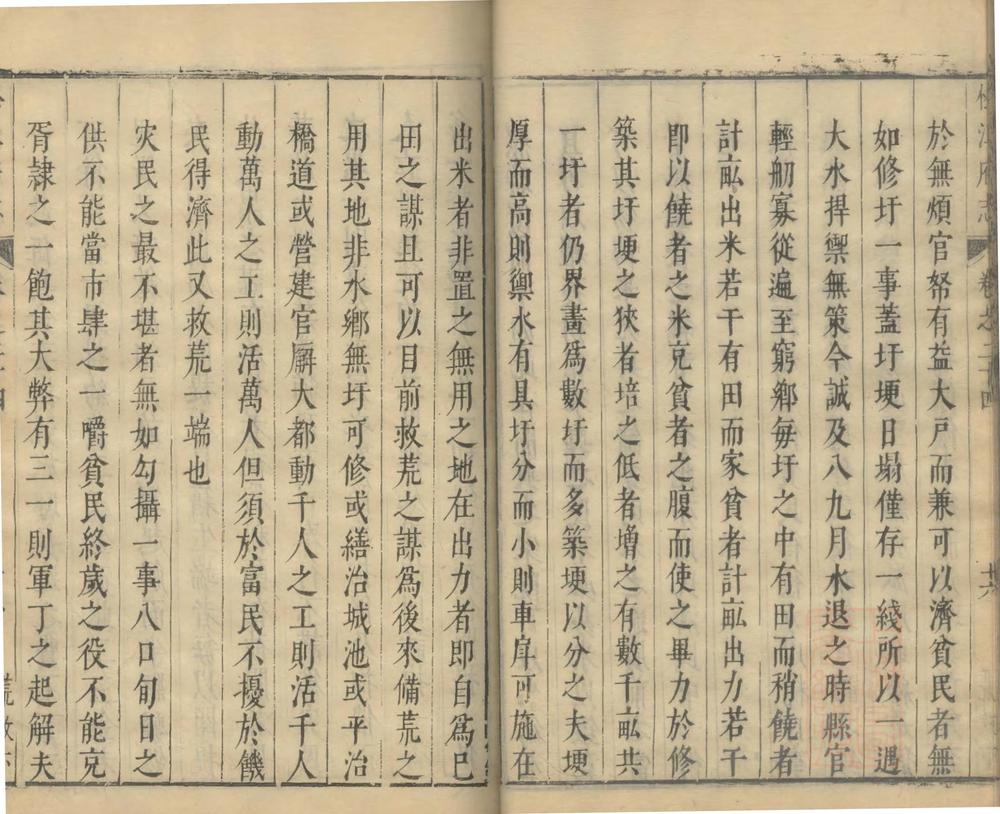 松江府志 卷之二十四 十六
於無煩官帑有益大戸而兼可以濟貧民者無
如修圩一事蓋圩埂日塌僅存一綫所以一遇
大水捍禦無策今誠及八九月水退之時縣官
輕舠寡從遍至窮鄉每圩之中有田而稍饒者
計畝出米若干有田而家貧者計畝出力若干
即以饒者之米克貧者之腹而使之畢力於修
築其圩埂之狹者培之低者增之有數千畝共
一圩者仍界畫爲數圩而多築埂以分之夫埂
厚而高則禦水有具圩分而小則車戽可施在
出米者非置之無用之地在出力者即自爲已
田之謀且可以目前救荒之謀爲後來備荒之
用其地非水鄉無圩可修或繕治城池或平治
橋道或營建官廨大都動千人之工則活千人
動萬人之工則活萬人但須於富民不擾於饑
民得濟此又救荒一端也
灾民之最不堪者無如勾攝一事八口旬日之
供不能當市肆之一嚼貧民終歲之役不能克
胥隷之一飽其大弊有三一則軍丁之起解夫
荒政下